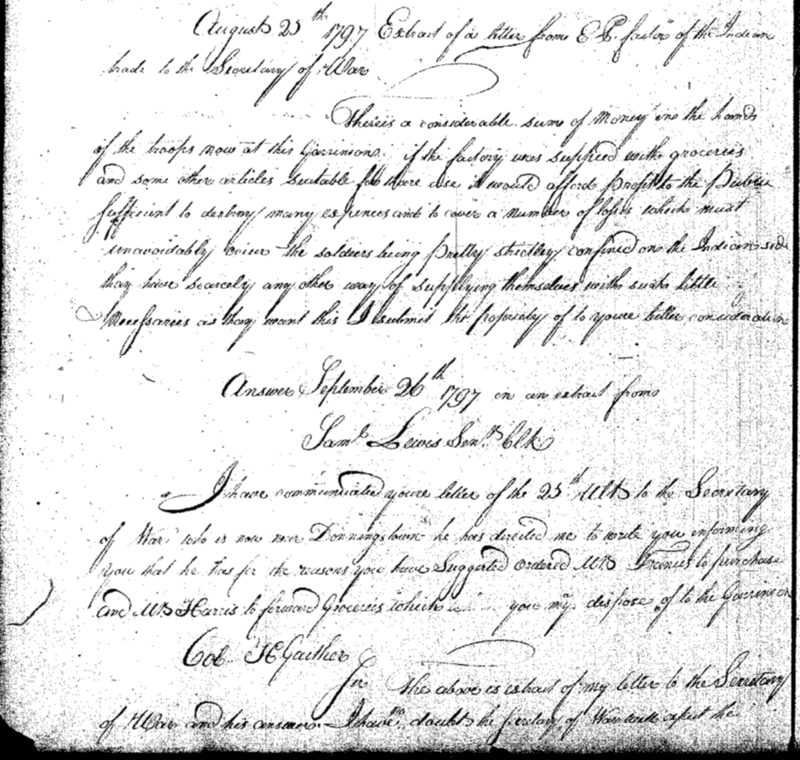 August 25th 1797 Extract of a letter from E P. factor of the Indian
trade to the Secretary of War
There is a considerable sum of Money in the hands
of the troops now at this Garrison. if the factory was supplied with groceries
and some other articles suitable for there use it would afford profit to the Publice
sufficient to destroy many expences and to cover a number of losses which must
unavoidably occur the soldiers being pretty strictley confined on the Indian side
thay have scarcely any other way of supplying themselves with such little
Necessaries as thay want this I submit the propriety of to youre better consideration
Answer September 26th 1797 in an extract from
Saml Lewis Senr Clk
I have communicated youre letter of the 25th Ult to the Secretary
of War who is now near Downingstown he has directed me to write you informing
you that he has for the reasons you have Suggested ordered Mr Francis to purchase
and Mr Harris to forward Groceries which you my dispose of to the Garrison
Col H Gaither
Sir the above is extract of my letter to the Secretary
of War and his answer I have no doubt the Secretary of War will expect the